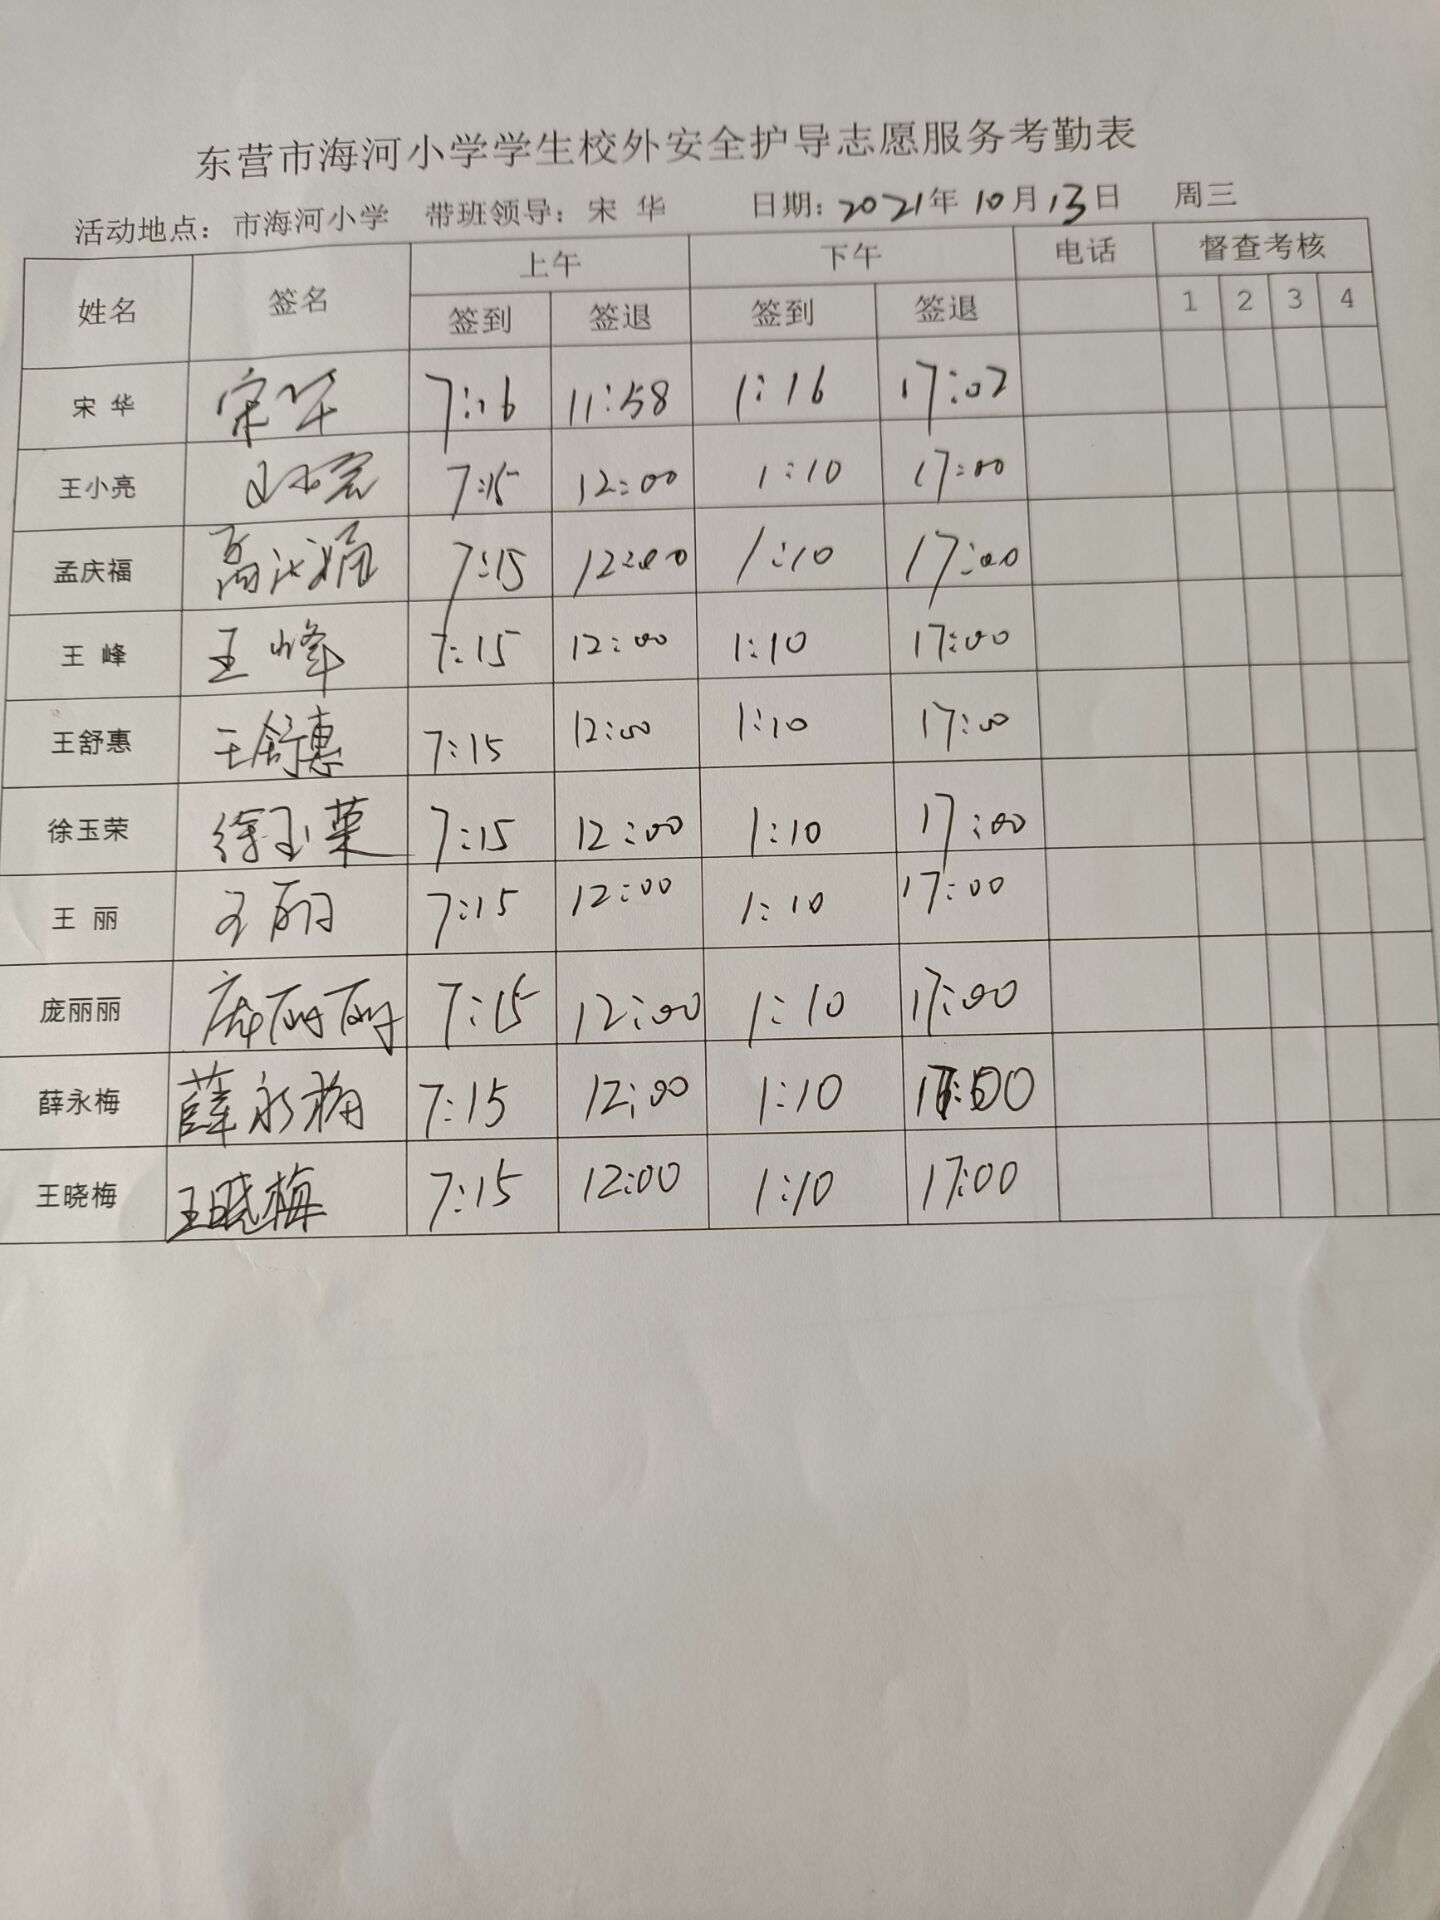 东营市海河小学学生校外安全护导志愿服务考勤表
活动地点：市海河小学 带班领导：宋 华 日期：2021年 10月13日 周三
姓名 签名 上午 下午 电话 督查考核
签到 签退 签到 签退 1 2 3 4
宋 华 宋华 7:16 11:58 1:16 17:02
王小亮 王小亮 7:15 12:00 1:10 17:00
孟庆福 7:15 12:00 1:10 17:00
王 峰 王峰 7:15 12:00 1:10 17:00
王舒惠 王舒惠 7:15 12:00 1:10 17:00
徐玉荣 徐玉荣 7:15 12:00 1:10 17:00
王 丽 王丽 7:15 12:00 1:10 17:00
庞丽丽 庞丽丽 7:15 12:00 1:10 17:00
薛永梅 薛永梅 7:15 12:00 1:10 17:00
王晓梅 王晓梅 7:15 12:00 1:10 17:00